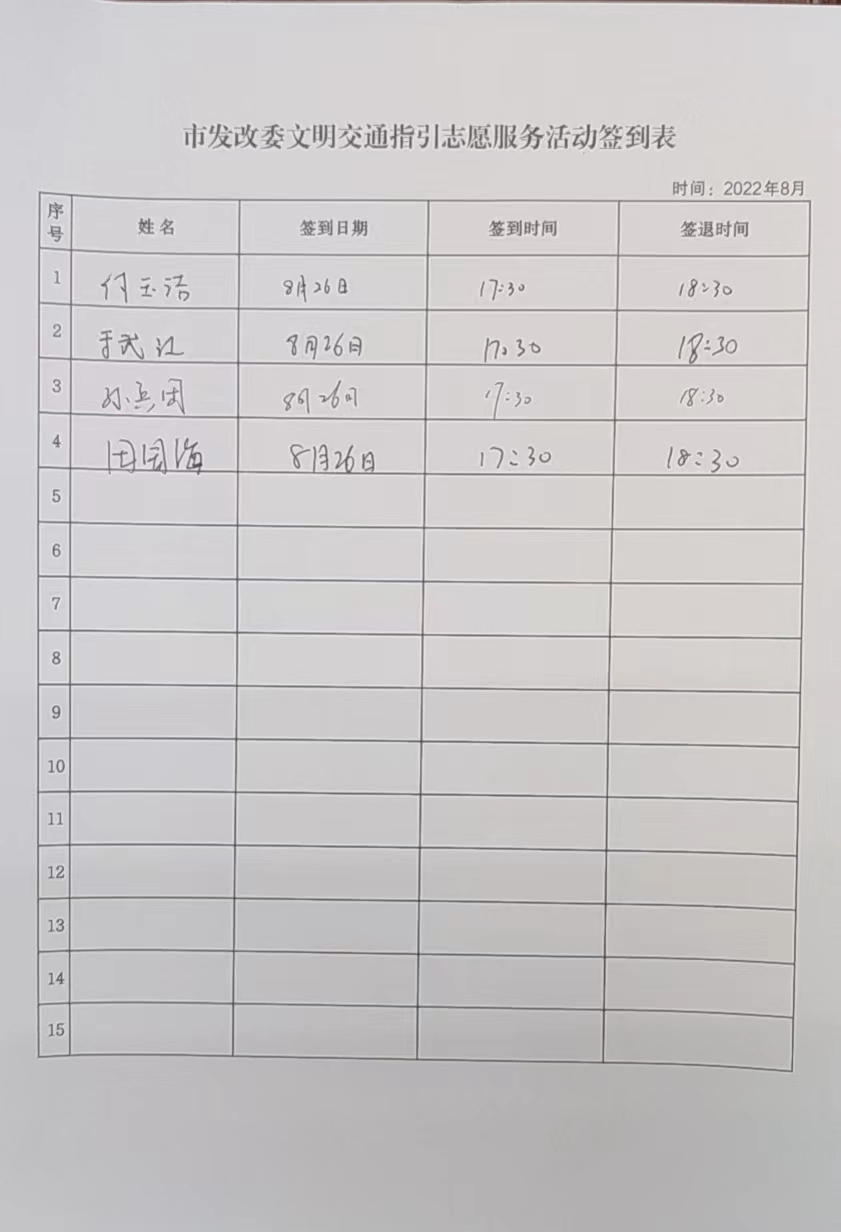 市发改委文明交通指引志愿服务活动签到表
时间：2022年8月
序号 姓名 签到日期 签到时间 签退时间
1 付玉洁 8月26日 17:30 18:30
2 于武江 8月26日 17:30 18:30
3 孙兵团 8月26日 17:30 18:30
4 田国海 8月26日 17:30 18:30
5
6
7
8
9
10
11
12
13
14
15